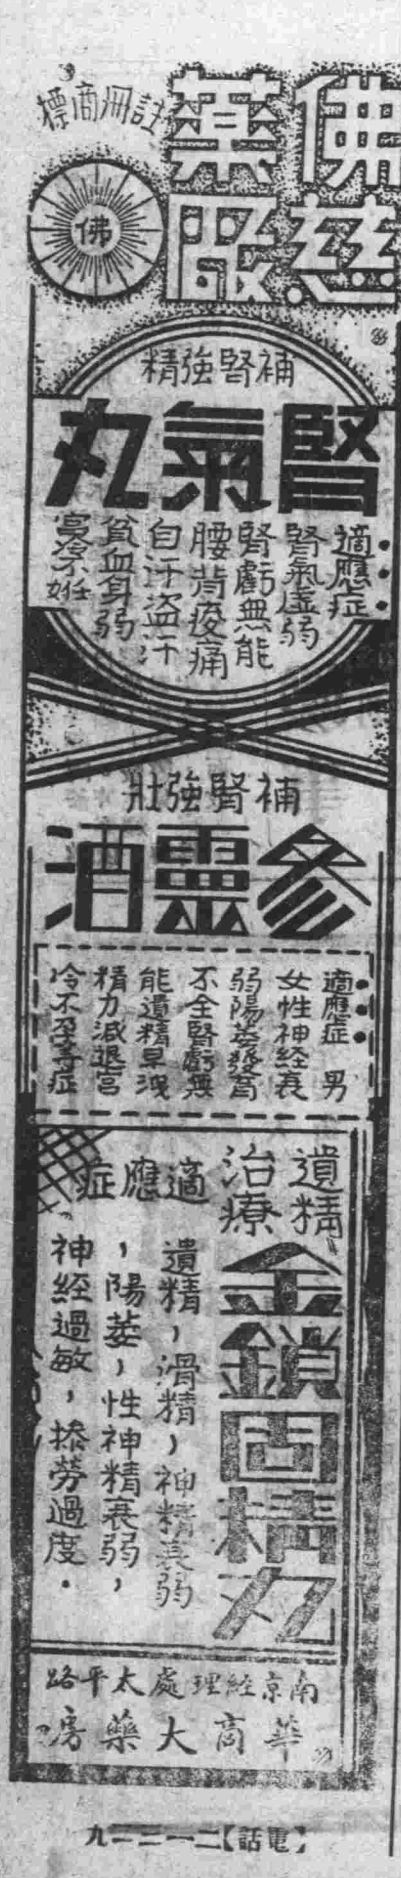 佛慈
藥廠
註冊商標
佛
補腎強精
腎氣丸
適應症
腎氣虛弱
腎虧無能
腰背痠痛
自汗盜汗
貧血身弱
宮冷不姙
補腎強壯
參靈酒
適應症 男
女性神經衰
弱陽萎發育
不全腎虧無
能遺精早洩
精力減退宮
冷不孕等症
遺精
治療
金鎖固精丸
適應症
遺精，滑精，神精衰弱
，陽萎，性神精衰弱，
神經過敏，操勞過度．
南京經理處太平路
華商大藥房
【電話】二一二二九